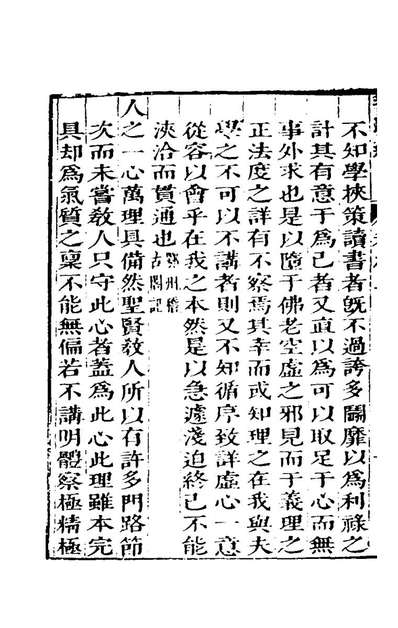 不知學挾策讀書者旣不過誇多鬭靡以爲利祿之
計其有意于爲己者又直以爲可以取足于心而無
事外求也是以隨于佛老空虛之邪見而于義理之
正法度之詳有不察焉其幸而或知理之在我與夫
學之不可以不講者則又不知循序致詳虛心一意
從容以會乎在我之本然是以急遽淺迫終已不能
浹洽而貫通也鄂州稽古閣記
人之一心萬理具備然聖賢敎人所以有許多門路節
次而未嘗敎人只守此心者蓋爲此心此理雖本完
具却爲氣質之稟不能無偏若不講明體察極精極